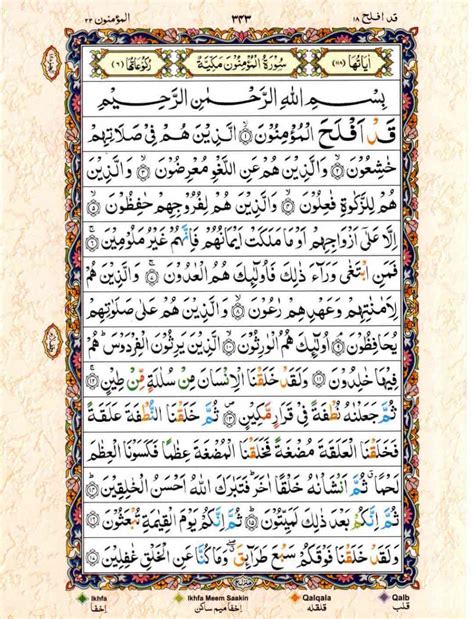 قد افلح ١٨
٣٤٣
المؤمنون ٢٣
اٰیَاتُهَا (١١٨)
سُوْرَةُ الْمُؤْمِنُوْنَ مَكِّيَّةٌ
رُكُوْعَاتُهَا (٦)
بِسْمِ اللهِ الرَّحْمٰنِ الرَّحِيْمِ
قَدْ اَفْلَحَ الْمُؤْمِنُوْنَ ۝١ الَّذِيْنَ هُمْ فِيْ صَلَاتِهِمْ
خٰشِعُوْنَ ۝٢ وَالَّذِيْنَ هُمْ عَنِ اللَّغْوِ مُعْرِضُوْنَ ۝٣ وَالَّذِيْنَ
هُمْ لِلزَّكٰوةِ فٰعِلُوْنَ ۝٤ وَالَّذِيْنَ هُمْ لِفُرُوْجِهِمْ حٰفِظُوْنَ ۝٥
اِلَّا عَلٰٓى اَزْوَاجِهِمْ اَوْ مَا مَلَكَتْ اَيْمَانُهُمْ فَاِنَّهُمْ غَيْرُ مَلُوْمِيْنَ ۝٦
فَمَنِ ابْتَغٰى وَرَآءَ ذٰلِكَ فَاُولٰٓئِكَ هُمُ الْعٰدُوْنَ ۝٧ وَالَّذِيْنَ هُمْ
لِاَمٰنٰتِهِمْ وَعَهْدِهِمْ رٰعُوْنَ ۝٨ وَالَّذِيْنَ هُمْ عَلٰى صَلَوٰتِهِمْ
يُحَافِظُوْنَ ۝٩ اُولٰٓئِكَ هُمُ الْوٰرِثُوْنَ ۝١٠ الَّذِيْنَ يَرِثُوْنَ الْفِرْدَوْسَ هُمْ
فِيْهَا خٰلِدُوْنَ ۝١١ وَلَقَدْ خَلَقْنَا الْاِنْسَانَ مِنْ سُلٰلَةٍ مِّنْ طِيْنٍ ۝١٢
ثُمَّ جَعَلْنٰهُ نُطْفَةً فِيْ قَرَارٍ مَّكِيْنٍ ۝١٣ ثُمَّ خَلَقْنَا النُّطْفَةَ عَلَقَةً
فَخَلَقْنَا الْعَلَقَةَ مُضْغَةً فَخَلَقْنَا الْمُضْغَةَ عِظٰمًا فَكَسَوْنَا الْعِظٰمَ
لَحْمًا ۗ ثُمَّ اَنْشَاْنٰهُ خَلْقًا اٰخَرَ ۗ فَتَبٰرَكَ اللهُ اَحْسَنُ الْخٰلِقِيْنَ ۝١٤
ثُمَّ اِنَّكُمْ بَعْدَ ذٰلِكَ لَمَيِّتُوْنَ ۝١٥ ثُمَّ اِنَّكُمْ يَوْمَ الْقِيٰمَةِ تُبْعَثُوْنَ ۝١٦
وَلَقَدْ خَلَقْنَا فَوْقَكُمْ سَبْعَ طَرَآئِقَ ۖ وَمَا كُنَّا عَنِ الْخَلْقِ غٰفِلِيْنَ ۝١٧
Ikhfa
اخفا
Ikhfa Meem Saakin
اخفا میم ساکن
Qalqala
قلقلہ
Qalb
قلب